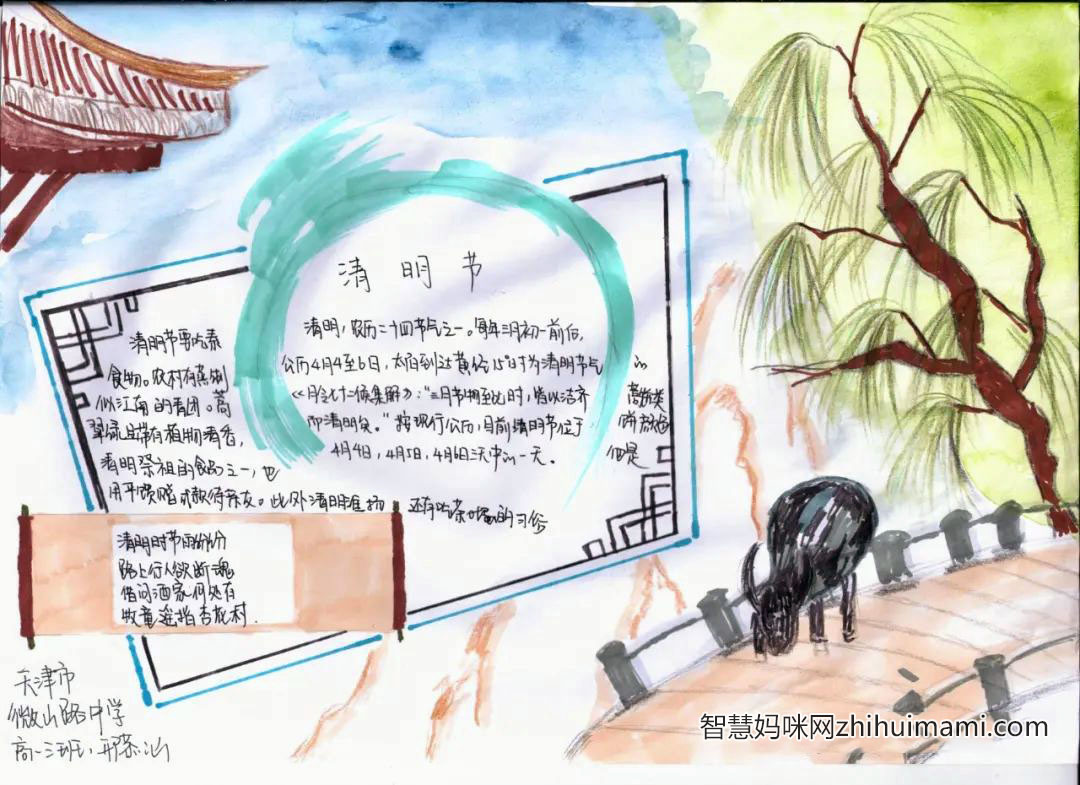 清明节
清明,农历二十四节气之一。每年三月初一前后,
公历4月4至6日,太阳到达黄经15°时为清明节气
《月令七十二候集解》:“三月节物至此时,皆以洁齐
而清明矣。”按现行公历,目前清明节位于
4月4日,4月5日,4月6日三天中的一天。
清明节要吃寒
食物。农村有蒸制 的
似江南的青团。蒿 蒿粄类
翠绿且带有植物清香,
清明祭祖的食品之一,也 但是
用于馈赠或款待亲友。此外清明 还有吃 的习俗
清明时节雨纷纷
路上行人欲断魂
借问酒家何处有
牧童遥指杏花村.
天津市
微山路中学
高一三班
智慧妈咪网zhihuimami.com